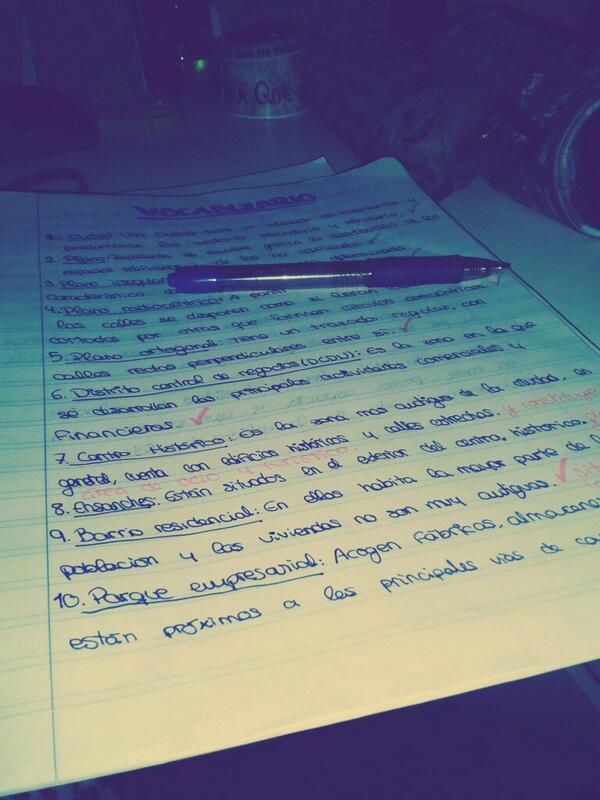 QUE
VOCABULARIO
1. Ciudad: Una ciudad tiene un elevado de habitantes y
predominan los sectores secundario y terciario.
2. Plano: Representa de manera gráfica la distribución de los
espacios edificados de los no edificados
3. Plano irregular
Característico
4. Plano radiocéntrico: A partir
las calles se disponen como si fueran concéntricas
cortadas por otras que forman círculos
5. Plano ortogonal: Tiene un trazado regular, con
calles rectas perpendiculares entre sí.
6. Distrito central de negocios (D.C.N): Es la zona en la que
se desarrollan las principales actividades comerciales y
financieras.
7. Centro Histórico: Es la zona mas antigua de la ciudad, en
general, cuenta con edificios históricos y calles estrechas. y constituye
área de ocio y turístico.
8. Ensanches: Están situados en el exterior del centro histórico.
9. Barrio residencial: En ellos habita la mayor parte de l
población y las viviendas no son muy antiguas.
10. Parque empresarial: Acogen fábricas, almacenes
están próximos a las principales vías de co